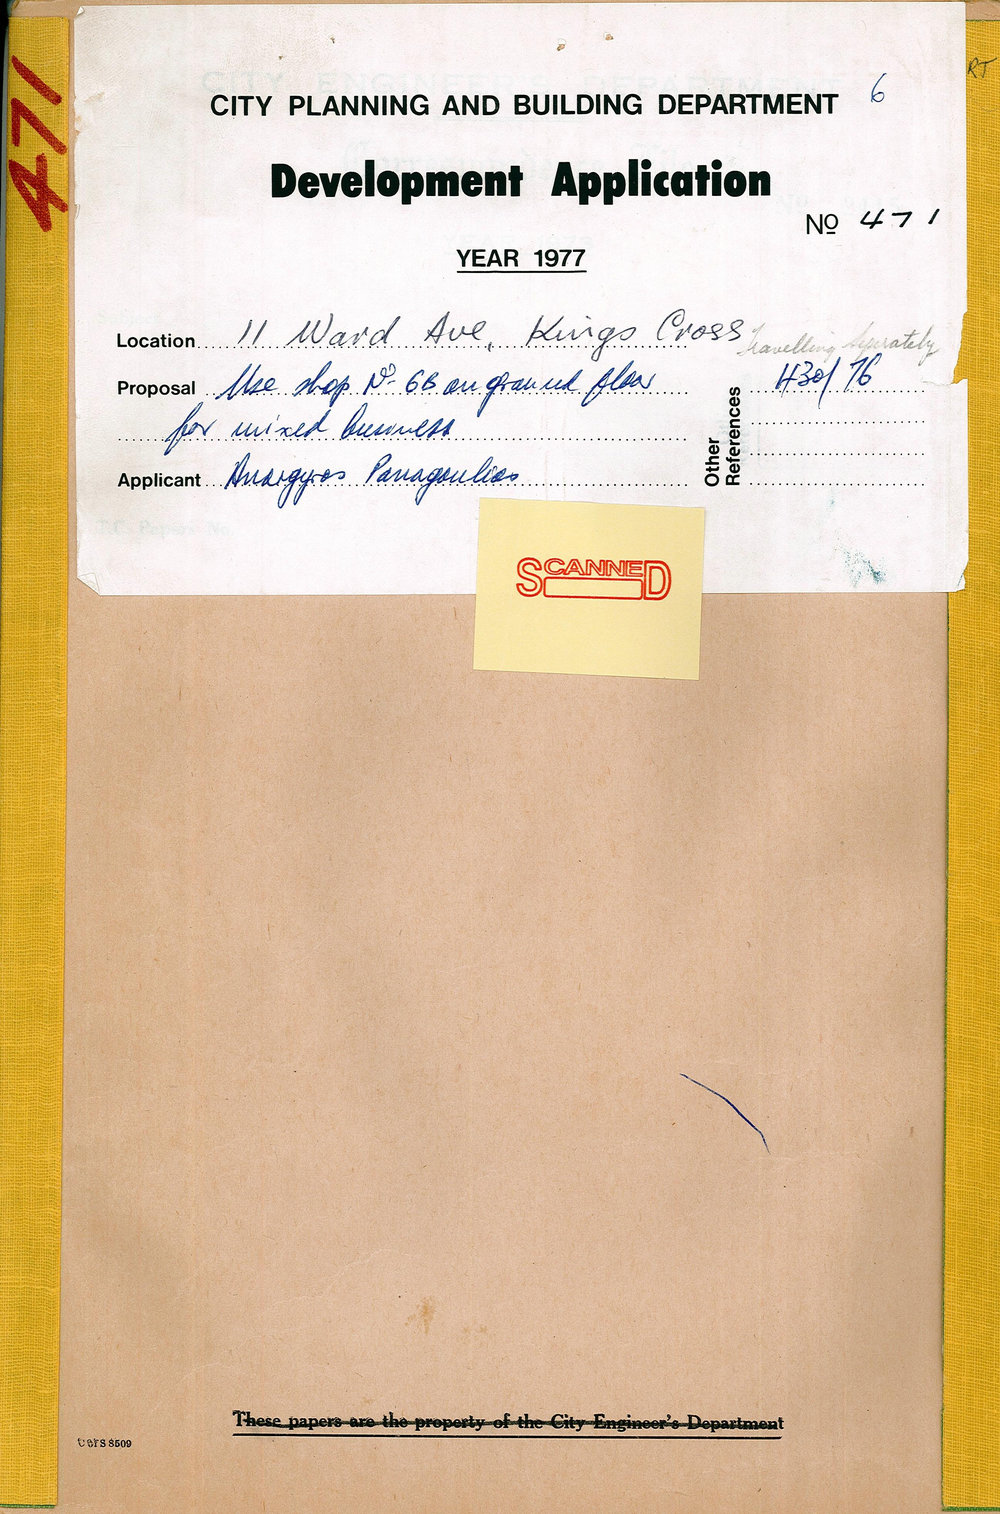 471
RT
CITY PLANNING AND BUILDING DEPARTMENT 6
Development Application
No 471
YEAR 1977
Location 11 Ward Ave, Kings Cross
Travelling Separately
Proposal Use shop No 6B on ground floor
for mixed business
Other References 430/76
Applicant Anargyros Panagoulias
SCANNED
These papers are the property of the City Engineer's Department
S 8509